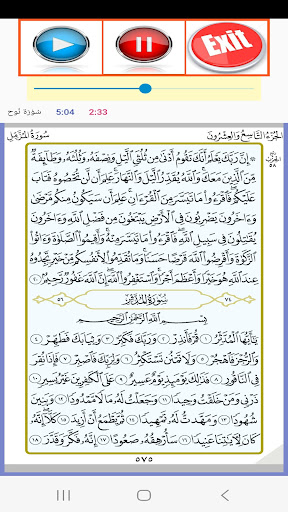 Exit
سورة نوح 5:04 2:33
سُورَةُ المُزَّمِّل الجُزءُ التَّاسِعُ وَالعِشْرُونَ
الحِزْب ٥٨
۞ إِنَّ رَبَّكَ يَعْلَمُ أَنَّكَ تَقُومُ أَدْنَىٰ مِن ثُلُثَيِ ٱلَّيْلِ وَنِصْفَهُۥ وَثُلُثَهُۥ وَطَآئِفَةٌ
مِّنَ ٱلَّذِينَ مَعَكَۚ وَٱللَّهُ يُقَدِّرُ ٱلَّيْلَ وَٱلنَّهَارَۚ عَلِمَ أَن لَّن تُحْصُوهُ فَتَابَ
عَلَيْكُمْۖ فَٱقْرَءُوا۟ مَا تَيَسَّرَ مِنَ ٱلْقُرْءَانِۚ عَلِمَ أَن سَيَكُونُ مِنكُم مَّرْضَىٰ
وَءَاخَرُونَ يَضْرِبُونَ فِى ٱلْأَرْضِ يَبْتَغُونَ مِن فَضْلِ ٱللَّهِۙ وَءَاخَرُونَ
يُقَٰتِلُونَ فِى سَبِيلِ ٱللَّهِۖ فَٱقْرَءُوا۟ مَا تَيَسَّرَ مِنْهُۚ وَأَقِيمُوا۟ ٱلصَّلَوٰةَ وَءَاتُوا۟
ٱلزَّكَوٰةَ وَأَقْرِضُوا۟ ٱللَّهَ قَرْضًا حَسَنًاۚ وَمَا تُقَدِّمُوا۟ لِأَنفُسِكُم مِّنْ خَيْرٍ تَجِدُوهُ
عِندَ ٱللَّهِ هُوَ خَيْرًا وَأَعْظَمَ أَجْرًاۚ وَٱسْتَغْفِرُوا۟ ٱللَّهَۖ إِنَّ ٱللَّهَ غَفُورٌ رَّحِيمٌۢ ٢٠
٧٤ سُورَةُ المُدَّثِّرِ ٥٦
بِسْمِ ٱللَّهِ ٱلرَّحْمَٰنِ ٱلرَّحِيمِ
يَٰٓأَيُّهَا ٱلْمُدَّثِّرُ ١ قُمْ فَأَنذِرْ ٢ وَرَبَّكَ فَكَبِّرْ ٣ وَثِيَابَكَ فَطَهِّرْ ٤
وَٱلرُّجْزَ فَٱهْجُرْ ٥ وَلَا تَمْنُن تَسْتَكْثِرُ ٦ وَلِرَبِّكَ فَٱصْبِرْ ٧ فَإِذَا نُقِرَ
فِى ٱلنَّاقُورِ ٨ فَذَٰلِكَ يَوْمَئِذٍ يَوْمٌ عَسِيرٌ ٩ عَلَى ٱلْكَٰفِرِينَ غَيْرُ يَسِيرٍ ١٠
ذَرْنِى وَمَنْ خَلَقْتُ وَحِيدًا ١١ وَجَعَلْتُ لَهُۥ مَالًا مَّمْدُودًا ١٢ وَبَنِينَ
شُهُودًا ١٣ وَمَهَّدتُّ لَهُۥ تَمْهِيدًا ١٤ ثُمَّ يَطْمَعُ أَنْ أَزِيدَ ١٥ كَلَّآۖ إِنَّهُۥ
كَانَ لِءَايَٰتِنَا عَنِيدًا ١٦ سَأُرْهِقُهُۥ صَعُودًا ١٧ إِنَّهُۥ فَكَّرَ وَقَدَّرَ ١٨
٥٧٥